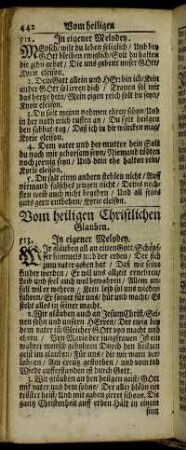 442 Vom heiligen
512. In eigener Melodey.
Mensch/ wilt du leben seliglich/ Und bey
GOtt bleiben ewiglich/ Solt du halten
die zehn gebot/ Die uns gebeut unser GOtt/
Kyrie eleison.
2. Dein Gott allein und HErr bin ich/ Kein
ander GOtt sol irren dich/ Trauen sol mir
das hertze dein/ Mein eigen reich solt du seyn/
Kyrie eleison.
3. Du solt meinen nahmen ehren schon/ Und
in der noth mich ruffen an/ Du solt heilgen
den sabbat-tag/ Daß ich in dir wircken mag/
Kyrie eleison.
4. Dem vater und der mutter dein Solt
du nach mir gehorsam seyn/ Niemand tödten
noch zornig seyn/ Und dein ehe halten rein/
Kyrie eleison.
5. Du solt eim andern stehlen nicht/ Auff
niemand falsches zeugen nicht/ Deins nech-
sten weib auch nicht begehren/ Und all seins
guts gern entbehren/ Kyrie eleison.
Vom heiligen Christlichen
Glauben.
513. In eigener Melodey.
WIr gläuben all an einen Gott/ Schöpf-
fer himmels und der erden/ Der sich
zum vater geben hat/ Daß wir seine
kinder werden/ Er wil uns allzeit ernehren/
Leib und seel auch wol bewahren/ Allem un-
fall wil er wehren/ Kein leid sol uns wiederfahren/
Er sorget für uns/ hüt und wacht/ Es
steht alles in seiner macht.
2. Wir gläuben auch an JEsum Christ/ Sei-
nen sohn und unsern HErren/ Der ewig bey
dem vater ist/ Gleicher GOtt von macht und
ehren/ Von Maria der jungfrauen Ist ein
wahrer mensch gebohren Durch den heilgen
geist im glauben/ Für uns/ die wir warn ver-
lohren/ Am creutz gestorben/ und vom tod
Wieder aufferstanden ist durch Gott.
3. Wir gläuben an den heilgen geist/ GOtt
mit vater und dem sohne/ Der aller blöden ein
tröster heist/ Und mit gaben zieret schone/ Die
gantz Christenheit auff erden Hält in einem
sinn